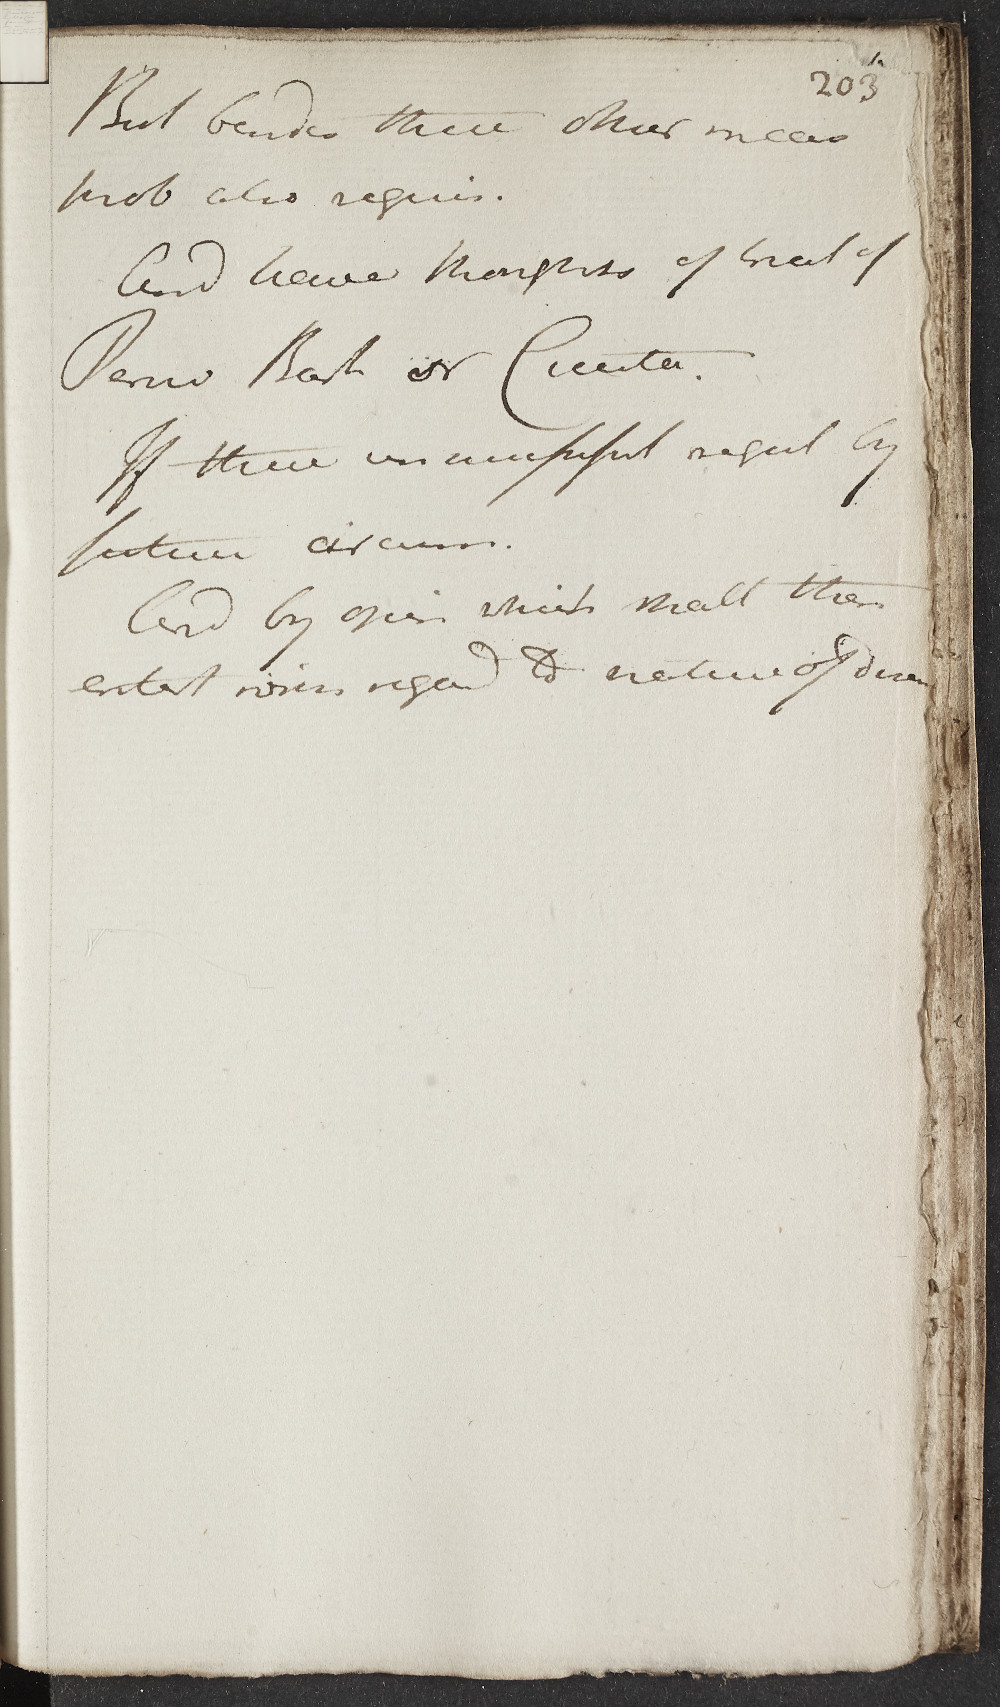 203
But besides these other meas
prob also requir.
And have thoughts of trial of
Peruv Bark or Cicuta.
If these unsuccessful regul by
future circum.
And by opin which shall then
entert with regard to nature of disea